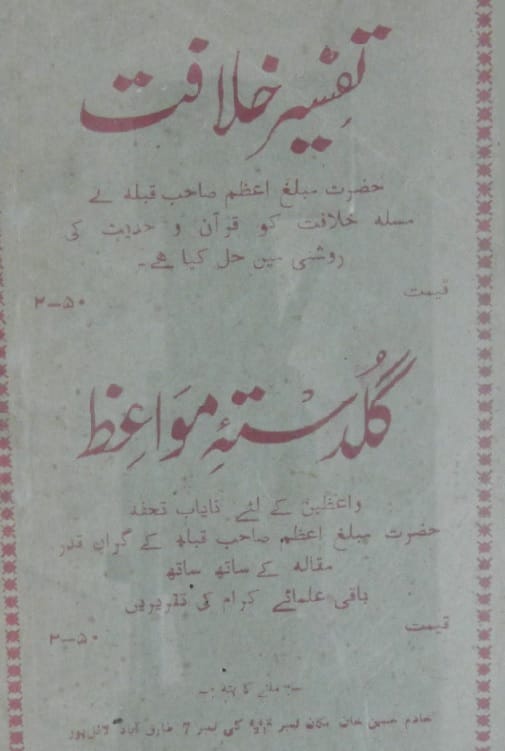 تفسیر خلافت
حضرت مبلغ اعظم صاحب قبلہ نے
مسلہ خلافت کو قرآن و حدیث کی
روشنی میں حل کیا ہے۔
قیمت ۵۰—۲
گلدستۂ مواعظ
واعظین کے لئے نایاب تحفہ
حضرت مبلغ اعظم صاحب قبلہ کے گراں قدر
مقالہ کے ساتھ ساتھ
باقی علمائے کرام کی تقریریں
قیمت ۵۰—۲
ملنے کا پتہ :۔
خادم حسین خان مکان نمبر گلی نمبر 7 طارق آباد لائل پور